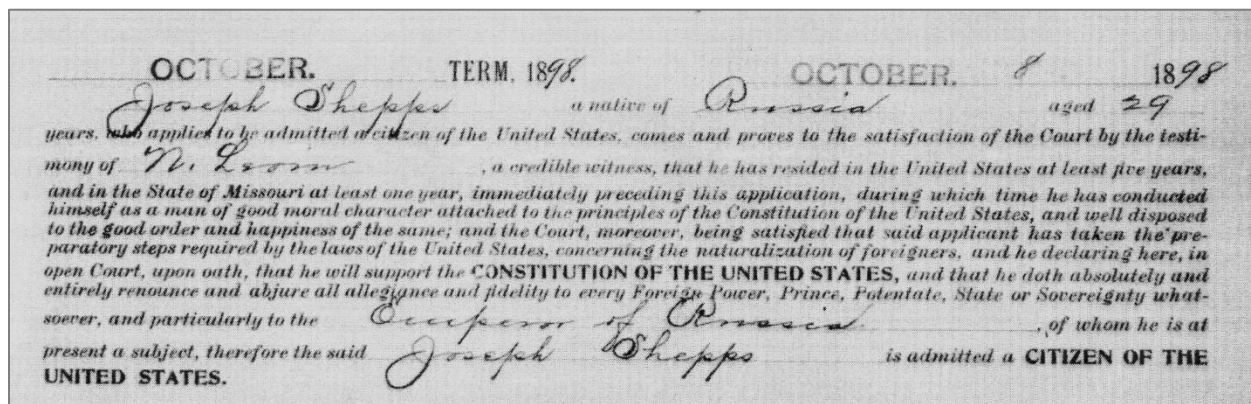 OCTOBER. TERM, 1898. OCTOBER. 8 1898
Joseph Shepps a native of Russia aged 29
years, who applies to be admitted a citizen of the United States, comes and proves to the satisfaction of the Court by the testi-
mony of N. , a credible witness, that he has resided in the United States at least five years,
and in the State of Missouri at least one year, immediately preceding this application, during which time he has conducted
himself as a man of good moral character attached to the principles of the Constitution of the United States, and well disposed
to the good order and happiness of the same; and the Court, moreover, being satisfied that said applicant has taken the pre-
paratory steps required by the laws of the United States, concerning the naturalization of foreigners, and he declaring here, in
open Court, upon oath, that he will support the CONSTITUTION OF THE UNITED STATES, and that he doth absolutely and
entirely renounce and abjure all allegiance and fidelity to every Foreign Power, Prince, Potentate, State or Sovereignty what-
soever, and particularly to the Emperor of Russia , of whom he is at
present a subject, therefore the said Joseph Shepps is admitted a CITIZEN OF THE
UNITED STATES.